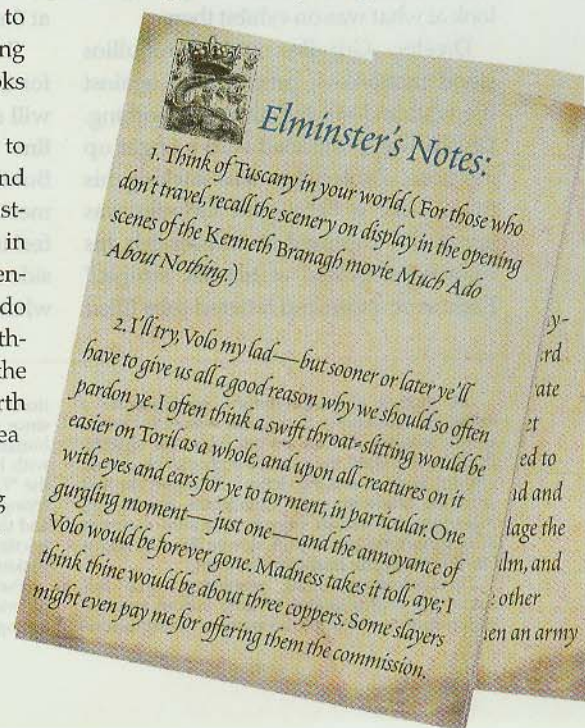 to
ng
oks
to
nd
st-
in
en-
do
th-
the
rth
ea
g
Elminster's Notes:
1. Think of Tuscany in your world. (For those who
don't travel, recall the scenery on display in the opening
scenes of the Kenneth Branagh movie Much Ado
About Nothing.)
2. I'll try, Volo my lad—but sooner or later ye'll
have to give us all a good reason why we should so often
pardon ye. I often think a swift throat-slitting would be
easier on Toril as a whole, and upon all creatures on it
with eyes and ears for ye to torment, in particular. One
gurgling moment—just one—and the annoyance of
Volo would be forever gone. Madness takes it toll, aye; I
think thine would be about three coppers. Some slayers
might even pay me for offering them the commission.
y-
rd
rate
et
ed to
nd and
lage the
lm, and
other
en an army